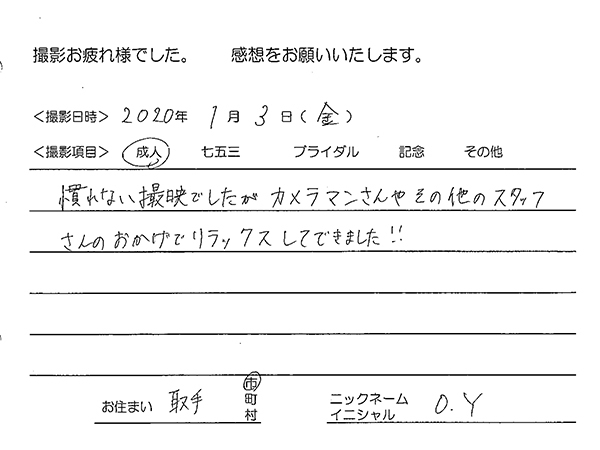 撮影お疲れ様でした。 感想をお願いいたします。
＜撮影日時＞ 2020年 1月 3日(金)
＜撮影項目＞ 成人 七五三 ブライダル 記念 その他
慣れない撮映でしたが カメラマンさんやその他のスタッフ
さんのおかげでリラックスしてできました!!
お住まい 取手 市町村 ニックネーム イニシャル O.Y